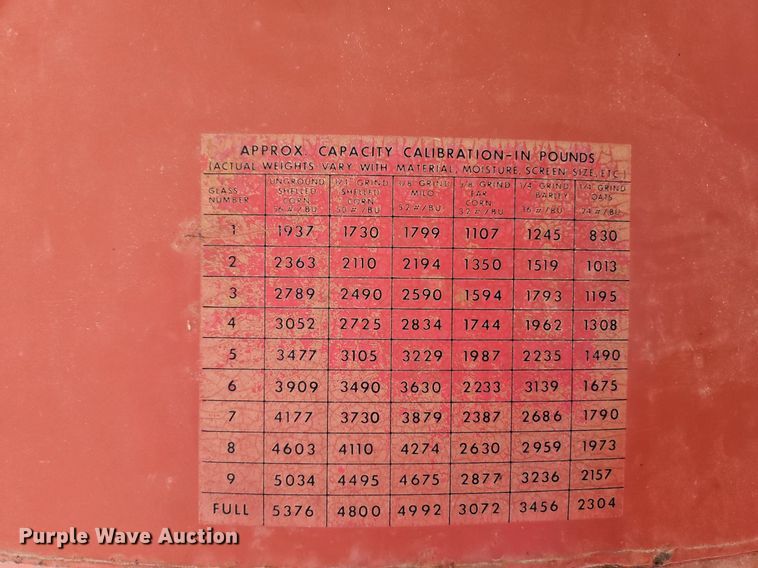 APPROX. CAPACITY CALIBRATION-IN POUNDS
(ACTUAL WEIGHTS VARY WITH MATERIAL, MOISTURE, SCREEN SIZE, ETC)
GLASS NUMBER UNGROUND SHELLED CORN 56 #/BU GRIND SHELLED CORN 50 #/BU 1/8" GRIND MILO 52 #/BU GRIND EAR CORN 32 #/BU 1/4" GRIND BARLEY 36 #/BU 1/4" GRIND OATS 24 #/BU
1 1937 1730 1799 1107 1245 830
2 2363 2110 2194 1350 1519 1013
3 2789 2490 2590 1594 1793 1195
4 3052 2725 2834 1744 1962 1308
5 3477 3105 3229 1987 2235 1490
6 3909 3490 3630 2233 3139 1675
7 4177 3730 3879 2387 2686 1790
8 4603 4110 4274 2630 2959 1973
9 5034 4495 4675 2877 3236 2157
FULL 5376 4800 4992 3072 3456 2304
Purple Wave Auction